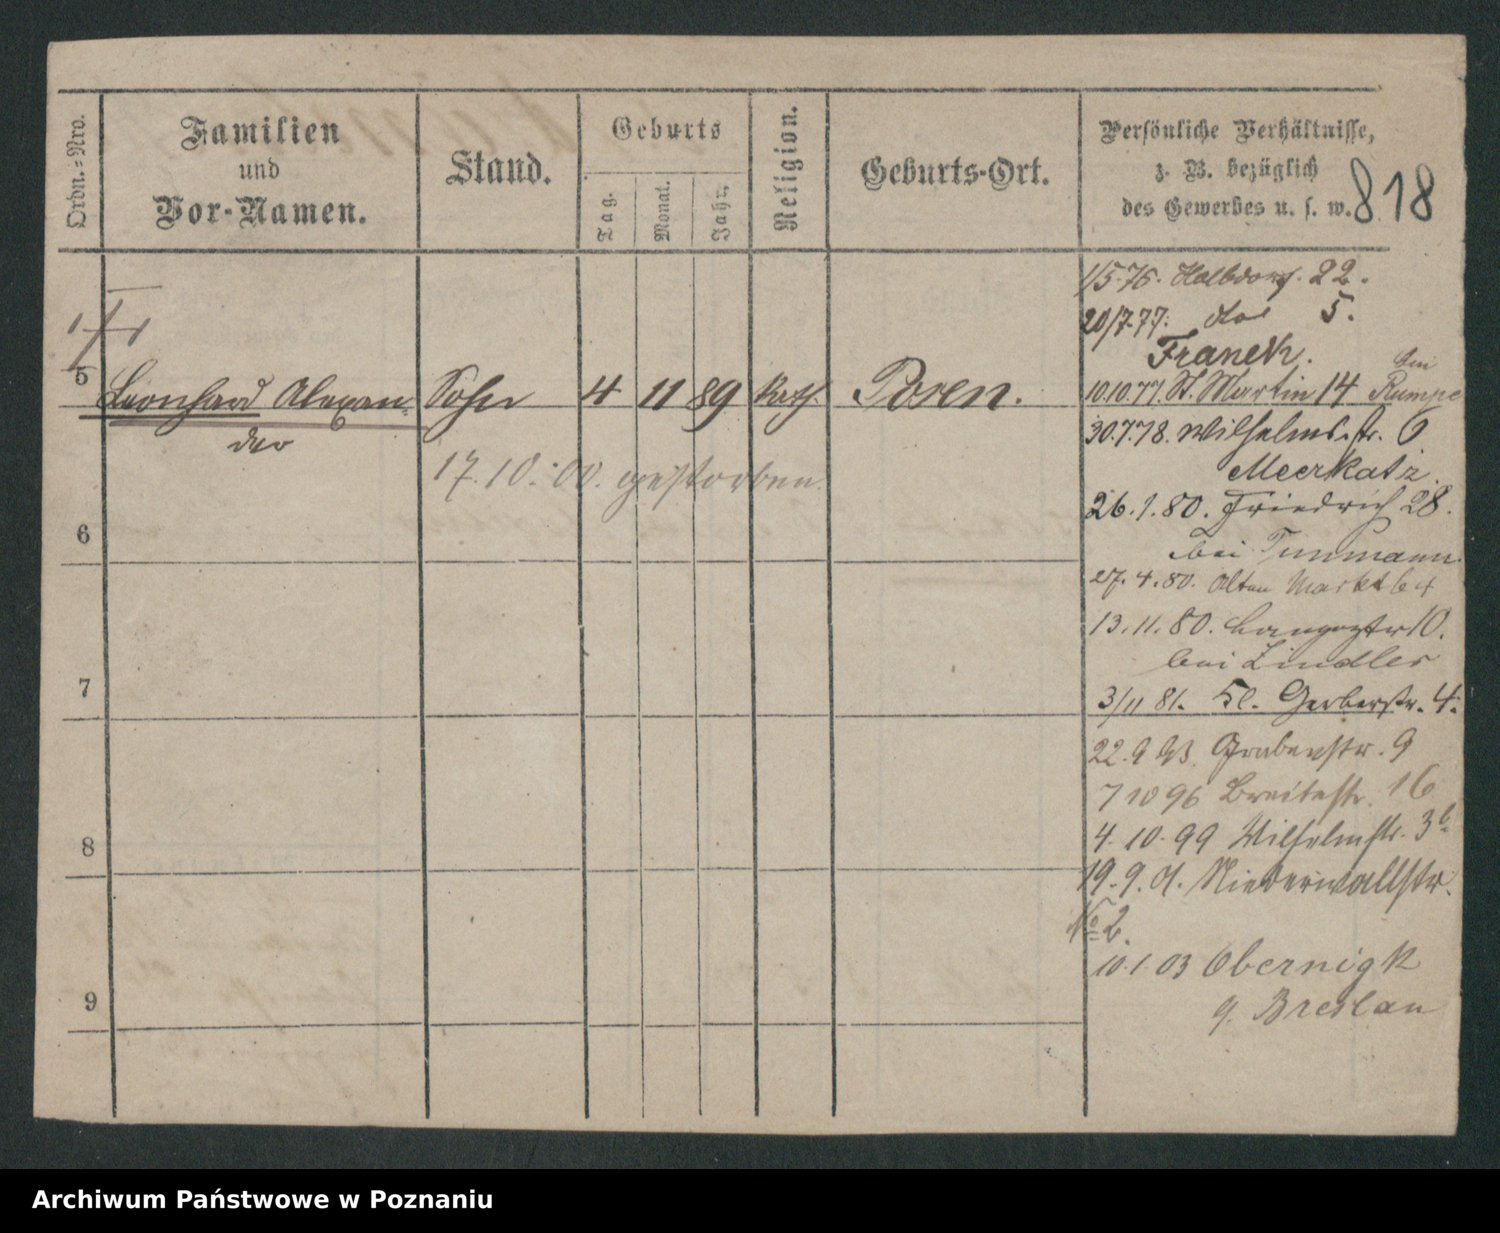 Ordn.=Nro.
Familien
und
Vor-Namen.
Stand.
Geburts
Tag.
Monat.
Jahr.
Religion.
Geburts-Ort.
Persönliche Verhältnisse,
z. B. bezüglich
des Gewerbes u. s. w.
818
5
Leonhard Alexan-
der
Sohn
4
11
89
kath.
Posen.
17.10.00. gestorben.
6
7
8
9
1/5.76. Halbdorf. 22.
20/7.77. do 5.
Franek.
10.10.77. St. Martin 14 Rumpe
30.7.78. Wilhelmstr. 6
Meerkatz.
26.1.80. Friedrich 28.
bei Tunmann
27.4.80. Alten Markt 64
13.11.80. Langestr 10.
bei Lindler
3/11 81. Kl. Gerberstr. 4.
22.9 93. Grabenstr. 9
7 10 96 Breitestr. 16
4. 10. 99 Wilhelmstr. 3b.
19. 9. 01. Niederwallstr.
No 2.
10.1.03 Obernigk
b. Breslau
Archiwum Państwowe w Poznaniu